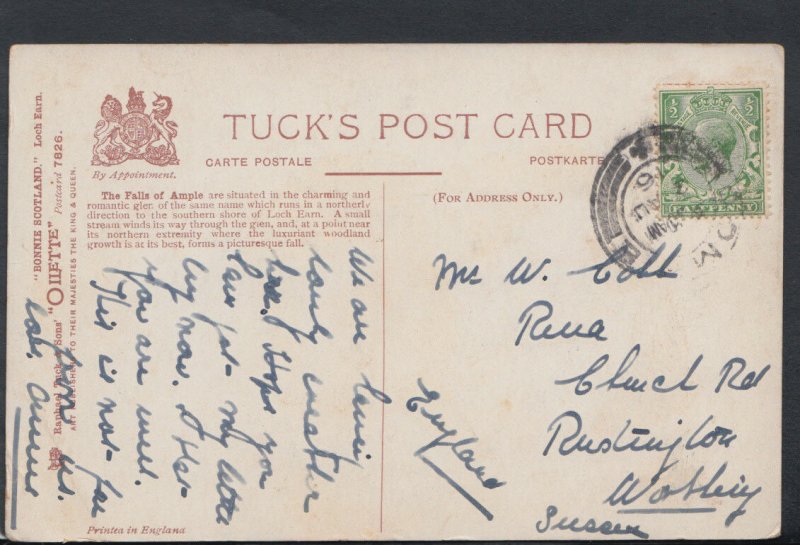 "BONNIE SCOTLAND." Loch Earn.
Raphael Tuck & Sons' "OILETTE" Postcard 7826.
ART PUBLISHERS TO THEIR MAJESTIES THE KING & QUEEN.
By Appointment.
TUCK'S POST CARD
CARTE POSTALE
POSTKARTE
The Falls of Ample are situated in the charming and
romantic glen of the same name which runs in a northerly
direction to the southern shore of Loch Earn. A small
stream winds its way through the glen, and, at a point near
its northern extremity where the luxuriant woodland
growth is at its best, forms a picturesque fall.
(FOR ADDRESS ONLY.)
½ ½
HALFPENNY
We are having
lovely weather
here. Hope you
have got my letter
by now. I see
you are well.
This is not far
from
Printed in England
Mr W. Cobb
Rena
Church Rd
Rustington
Worthing
Sussex
England